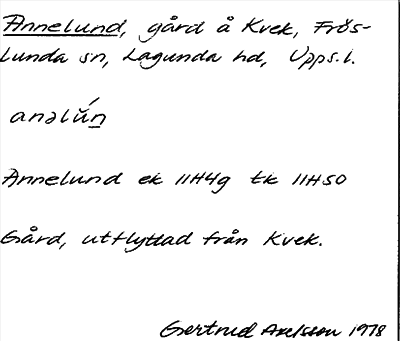 Annelund, gård å Kvek, Frös-
lunda sn, Lagunda hd, Upps.l.
anəlún̲
Annelund ek 11H4g tk 11H50
Gård, utflyttad från Kvek.
Gertrud Axelsson 1978